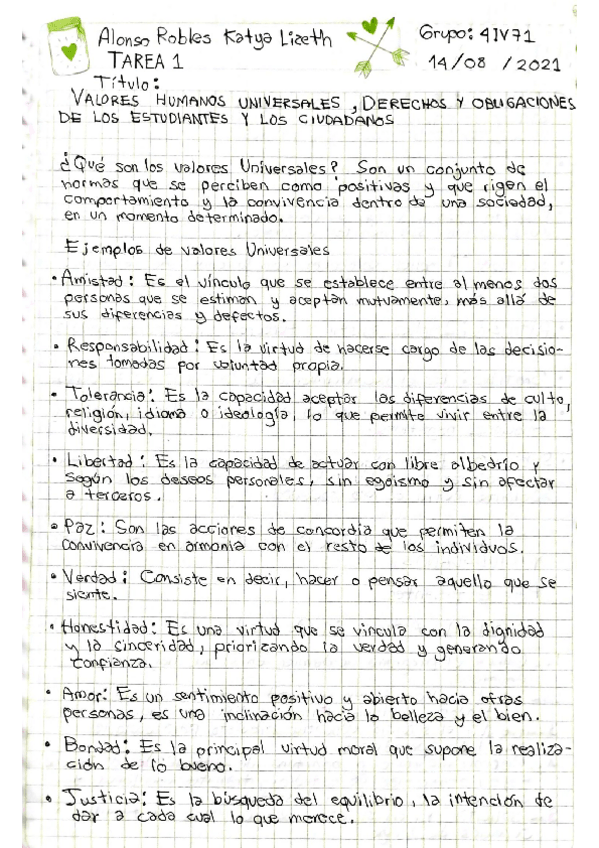 Alonso Robles Katya Lizeth
Grupo: 4IV71
TAREA 1
14/08/2021
Título:
VALORES HUMANOS UNIVERSALES, DERECHOS Y OBLIGACIONES
DE LOS ESTUDIANTES Y LOS CIUDADANOS
¿Qué son los valores Universales? Son un conjunto de
normas que se perciben como positivas y que rigen el
comportamiento y la convivencia dentro de una sociedad,
en un momento determinado.
Ejemplos de valores Universales
• Amistad: Es el vínculo que se establece entre al menos dos
personas que se estiman y aceptan mutuamente, más allá de
sus diferencias y defectos.
• Responsabilidad: Es la virtud de hacerse cargo de las decisio-
nes tomadas por voluntad propia.
• Tolerancia: Es la capacidad aceptar las diferencias de culto,
religión, idioma o ideología, lo que permite vivir entre la
diversidad.
• Libertad: Es la capacidad de actuar con libre albedrío y
según los deseos personales, sin egoísmo y sin afectar
a terceros.
• Paz: Son las acciones de concordia que permiten la
convivencia en armonía con el resto de los individuos.
• Verdad: Consiste en decir, hacer o pensar aquello que se
siente.
• Honestidad: Es una virtud que se vincula con la dignidad
y la sinceridad, priorizando la verdad y generando
confianza.
• Amor: Es un sentimiento positivo y abierto hacia otras
personas, es una inclinación hacia lo belleza y el bien.
• Bondad: Es la principal virtud moral que supone la realiza-
ción de lo bueno.
• Justicia: Es la búsqueda del equilibrio, la intención de
dar a cada cual lo que merece.